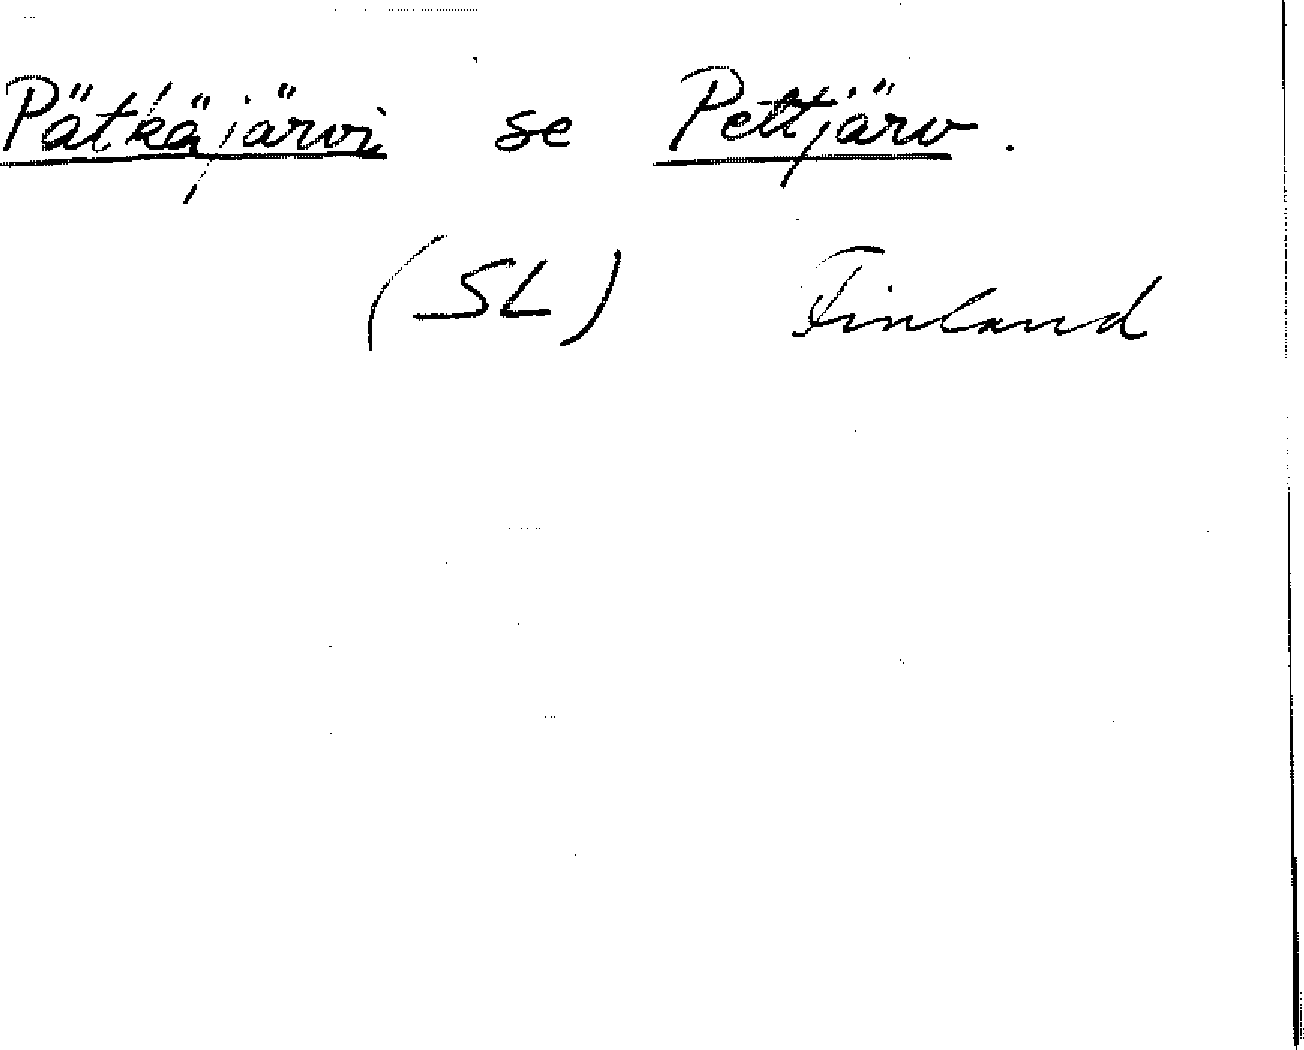 Pätkäjärvi se Pettjärv.
(SL) Finland